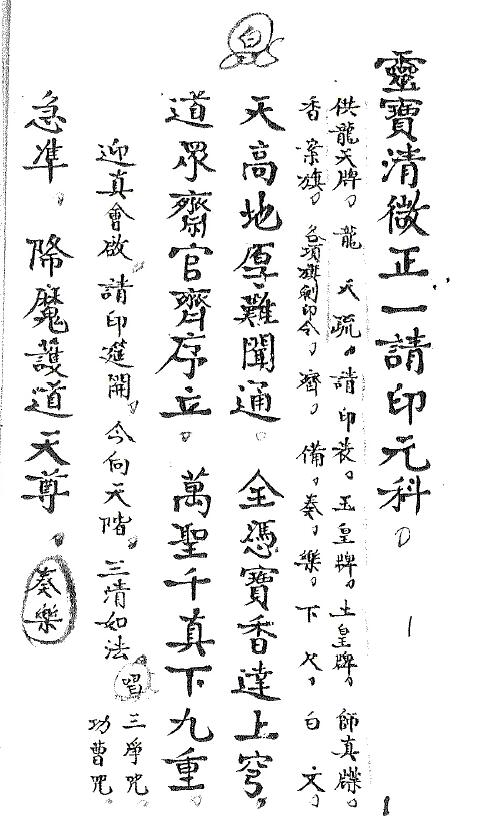 靈寶清微正一請印元科。
供龍天牌。龍天疏。請印裝。玉皇牌。土皇牌。師真牒。
香案旗。各項旗劍印令。齊。備。奏。樂。下。文。白文。
天高地厚難聞通。全憑寶香達上穹。
道眾齋官齊序立。萬聖千真下九重。
迎真會啟請印筵開。今向天階。三清如法
唱
三淨咒。
功曹咒。
急准。降魔護道天尊。
奏樂